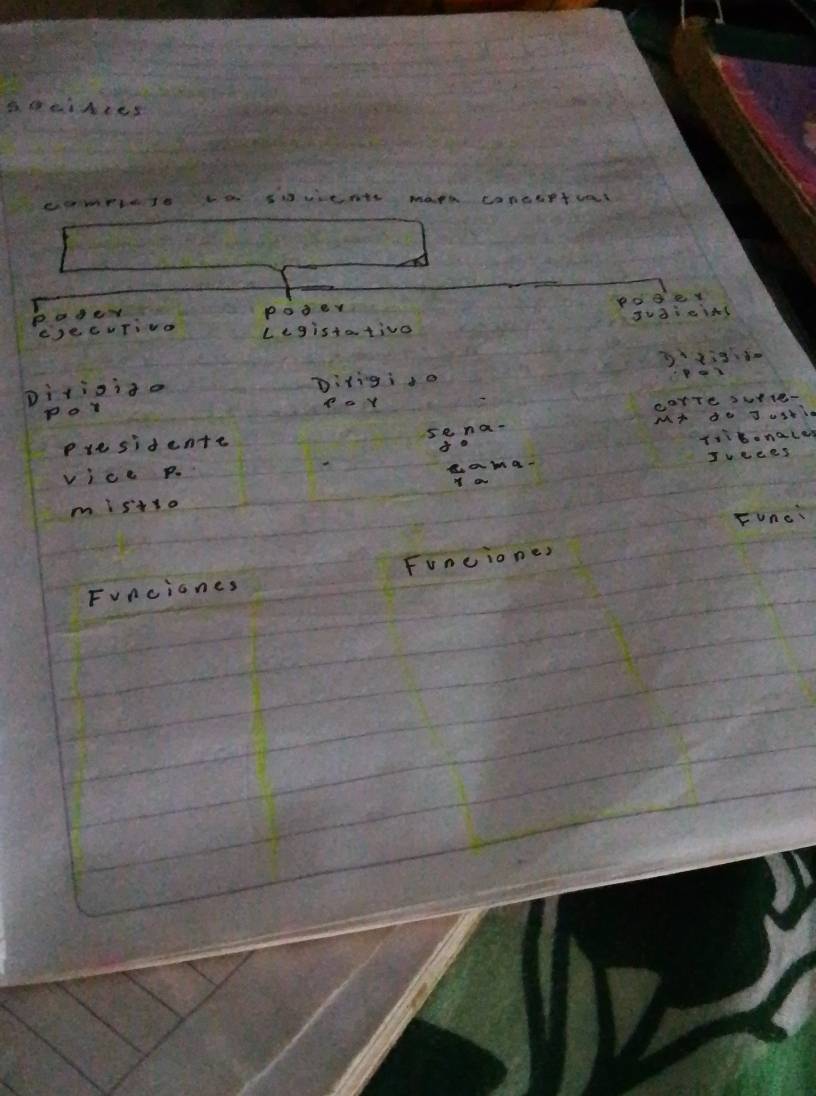 sociAles
completo la siguiente mapa conceptual
poder
ejecutivo
poder
Legistativo
poder
Judicial
Dirigido
por
Dirigido
por
Dirigido
por
presidente
vice p.
mistro
sena-
do
cama-
ra
corte supre-
ma de Justi
Tribonales
Jueces
Funciones
Funciones
Funci